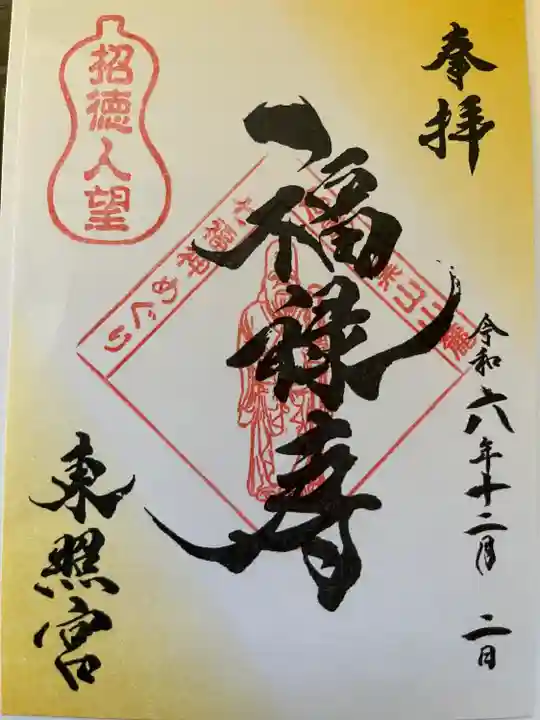 奉拝
福禄寿
令和六年十二月二日
東照宮
招徳人望
七福神めぐり